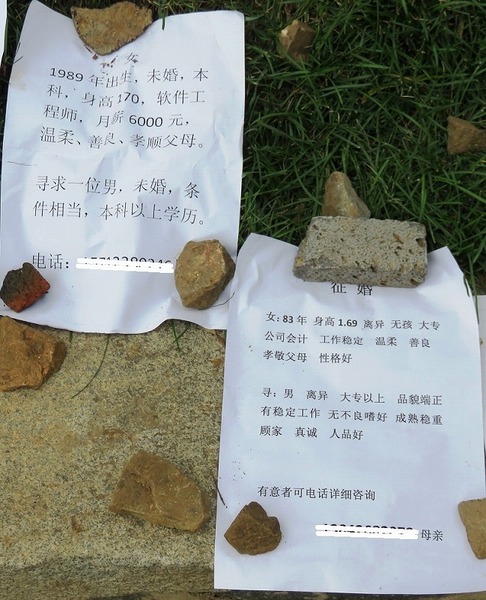 女
1989年出生，未婚，本
科，身高170，软件工
程师，月薪6000元，
温柔、善良、孝顺父母。
寻求一位男，未婚，条
件相当，本科以上学历。
电话：
征 婚
女：83年 身高1.69 离异 无孩 大专
公司会计 工作稳定 温柔 善良
孝敬父母 性格好
寻：男 离异 大专以上 品貌端正
有稳定工作 无不良嗜好 成熟稳重
顾家 真诚 人品好
有意者可电话详细咨询
母亲